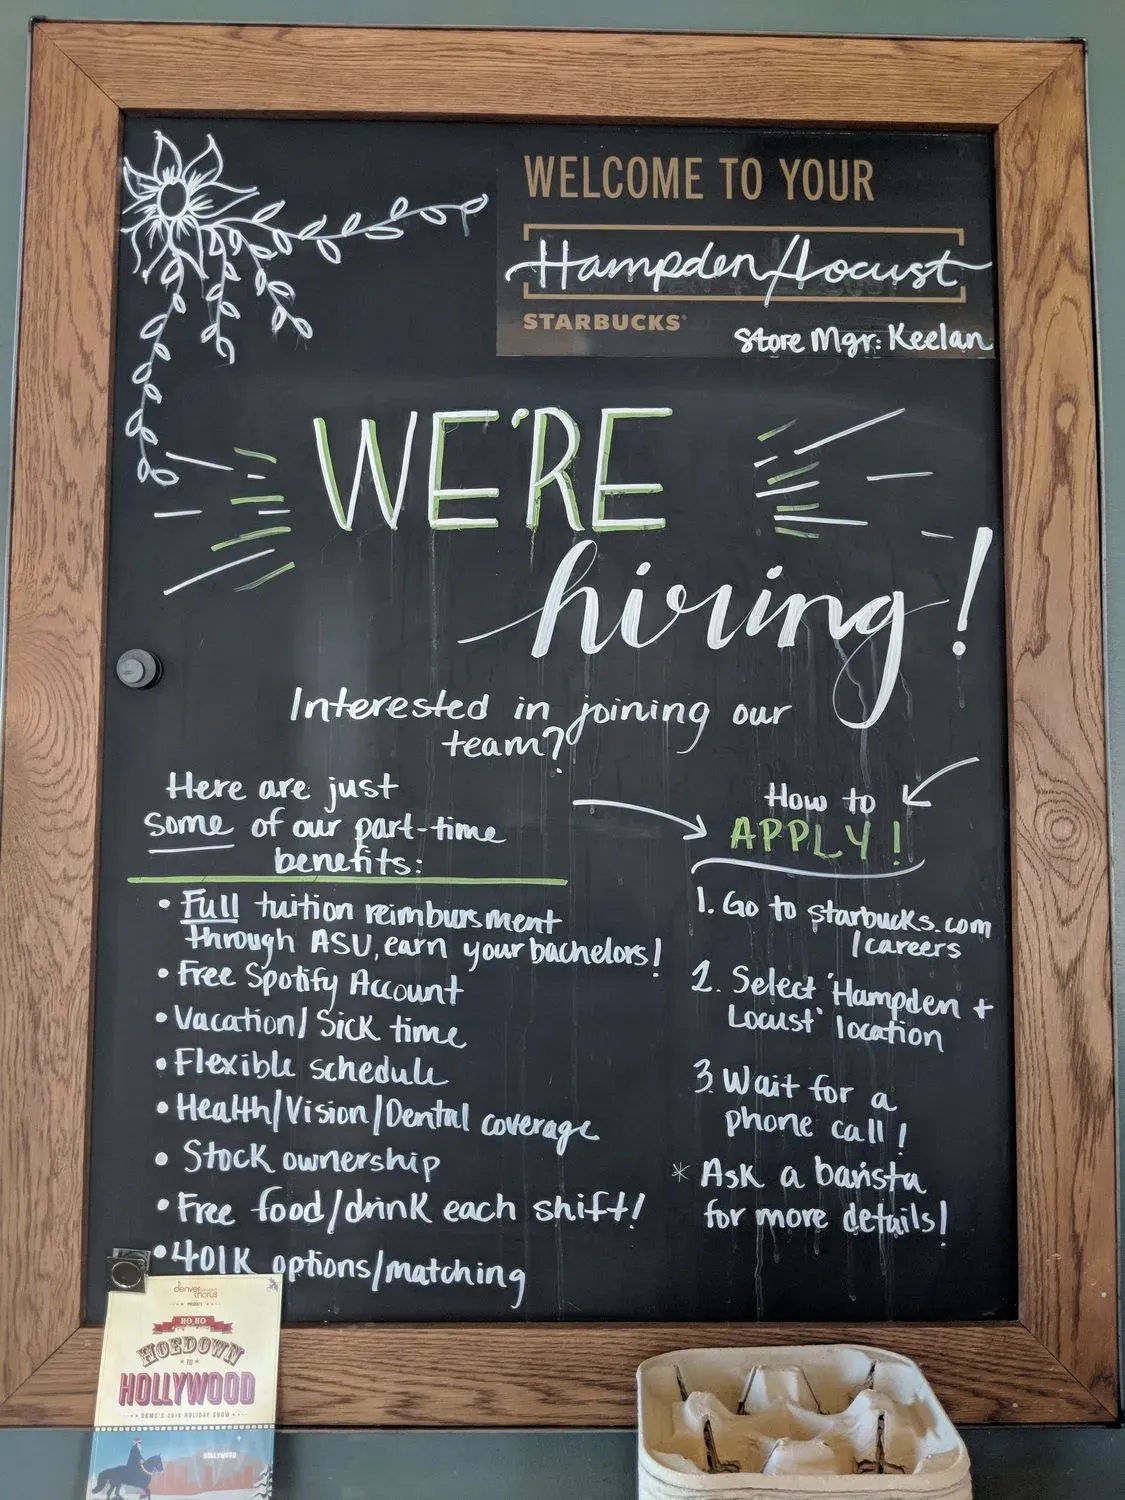 WELCOME TO YOUR
Hampden/Locust
STARBUCKS
Store Mgr: Keelan
WE'RE
hiring!
Interested in joining our
team?
Here are just
some of our part-time
benefits:
• Full tuition reimbursment
through ASU, earn your bachelors!
• Free Spotify Account
• Vacation/Sick time
• Flexible schedule
• Health/Vision/Dental coverage
• Stock ownership
• Free food/drink each shift!
• 401K options/matching
How to
APPLY!
1. Go to starbucks.com
/careers
2. Select 'Hampden +
Locust' location
3. Wait for a
phone call!
* Ask a barista
for more details!
denver
chorus
PRESENTS
HO HO
HOEDOWN
TO
HOLLYWOOD
DGMC'S 2018 HOLIDAY SHOW
HOLLYWOOD